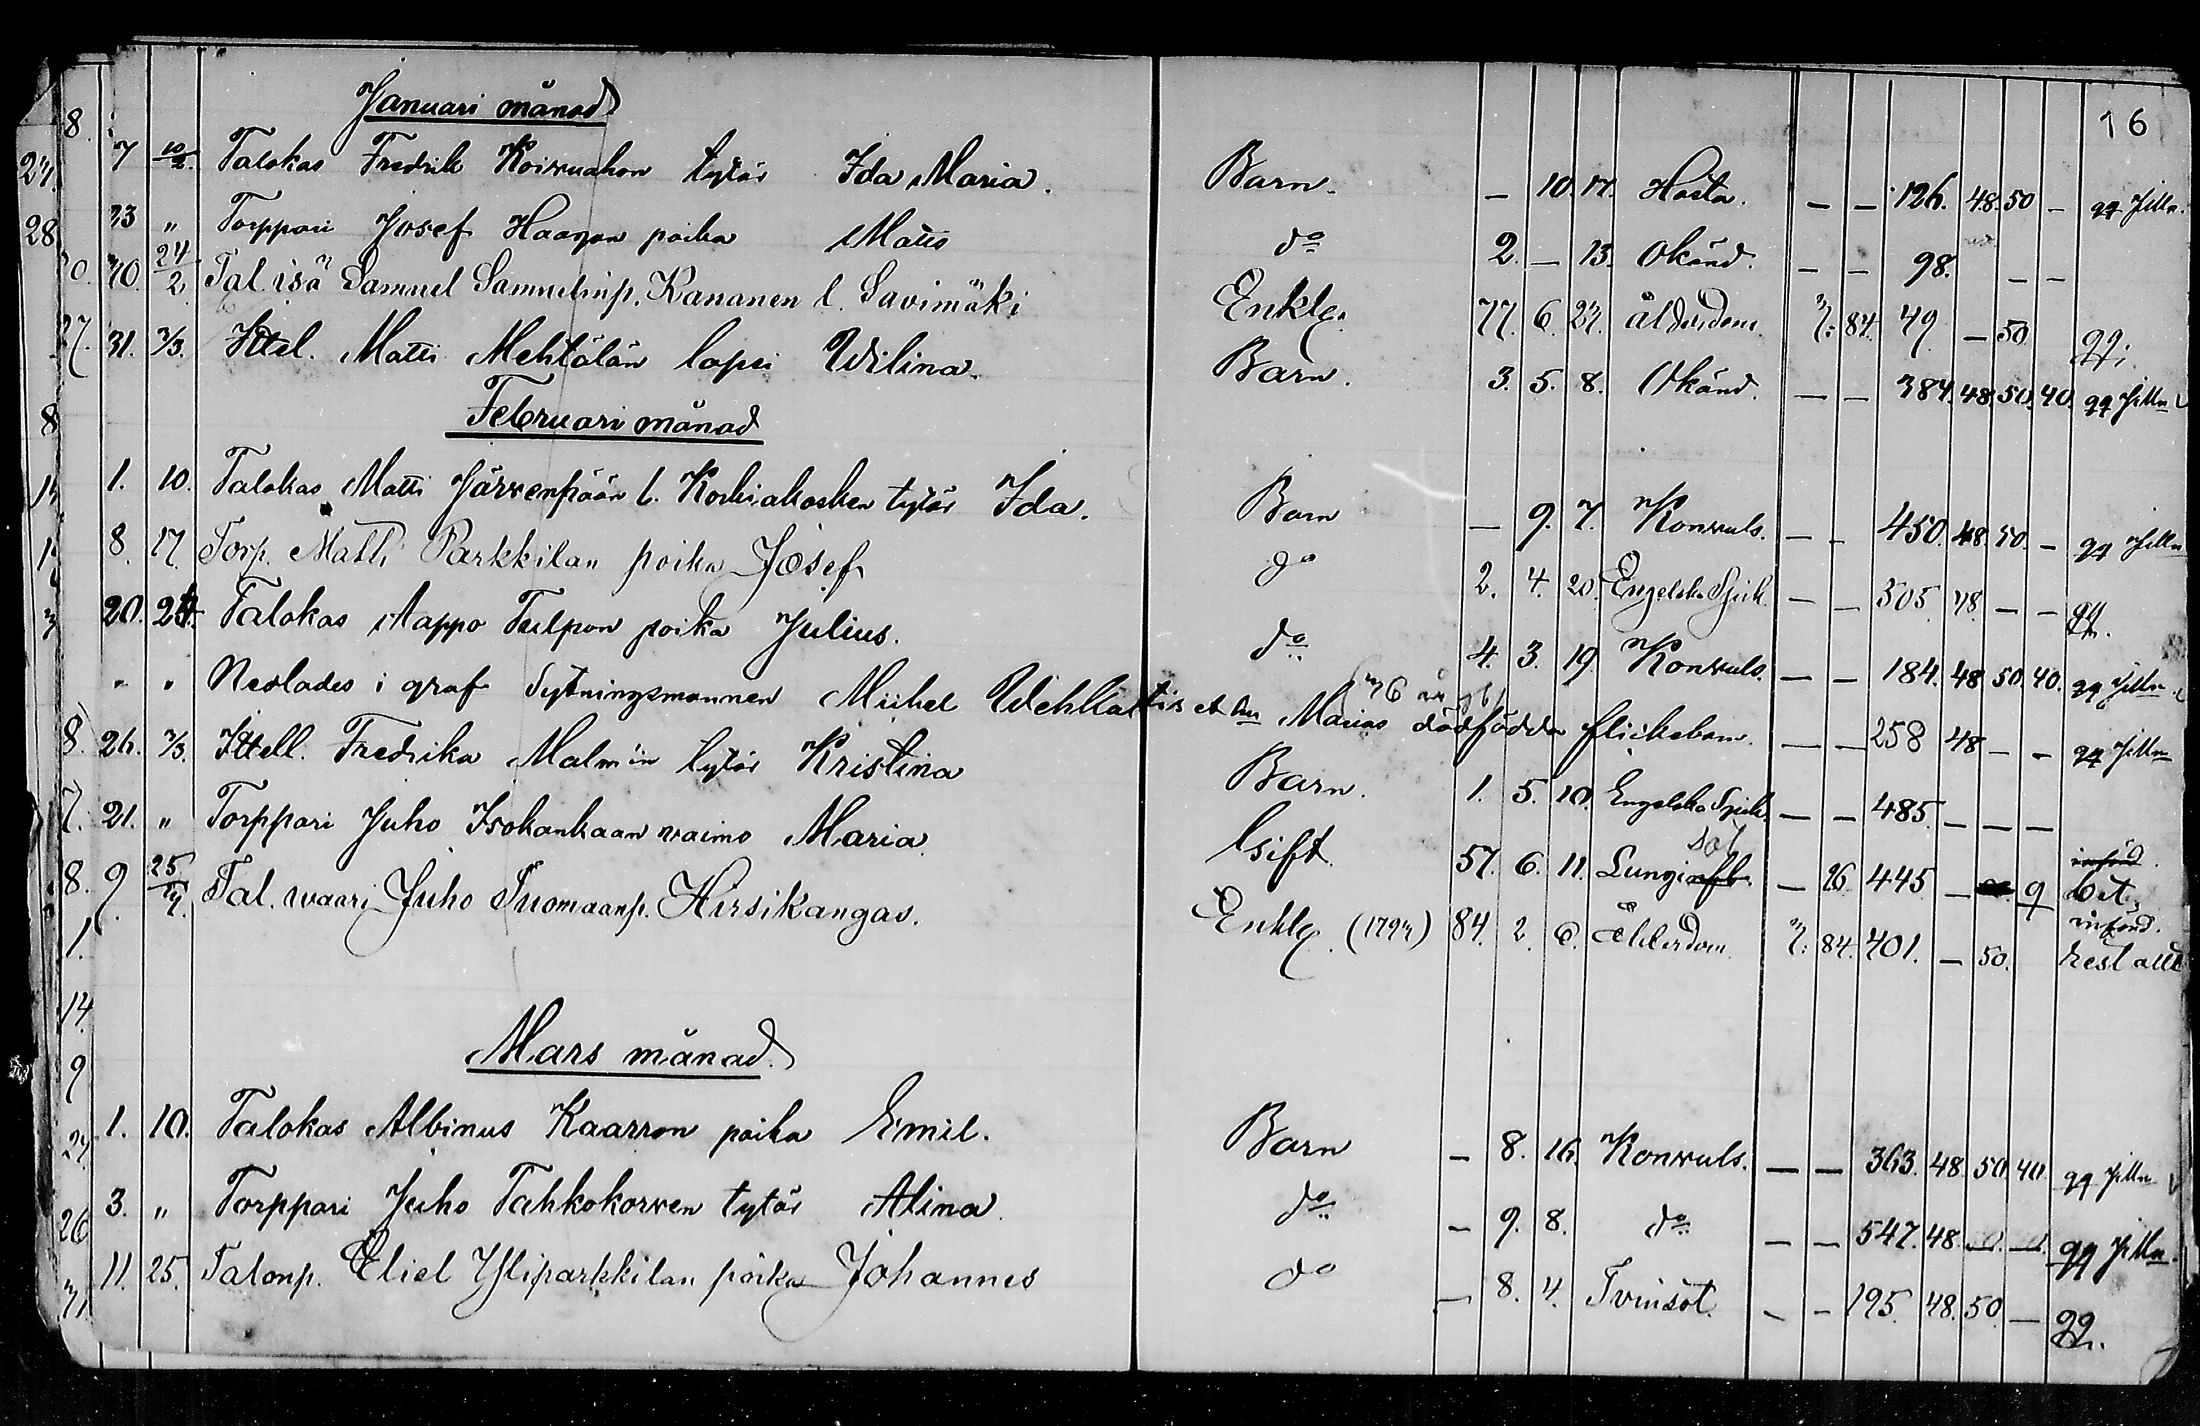 16
Januari månad
7 10/2. Talokas Fredrik Koivuahon tytär Ida Maria. Barn. — 10. 17. Hosta. — — 126. 48. 50 —
23 „ Torppari Josef Haapan poika Matts do 2. — 13. Okänd. — — 98. — —
30. 24/2 Tal. isä Samuel Samuelinp. Kananen l. Savimäki Enklg. 77. 6. 27. ålderdom. 84. 49 — 50 qq.
31. 3/3. Ittel. Matti Mehtälän lapsi Wilina. Barn. 3. 5. 8. Okänd. — — 384. 48. 50. 40.
Februari månad
1. 10. Talokas Matti Järvenpään l. Koskiakosken tytär Ida. Barn — 9. 7. Konvuls. — — 450. 48. 50. —
8. 17. Torp. Matti Parkkilan poika Josef do 2. 4. 20. Engelska Sjuk. — — 305 48. — — qq.
20. 24. Talokas Aappo Tulpon poika Julius. do 4. 3. 19. Konvuls. — — 184. 48 50. 40.
„ „ Nedlades i graf Sytningsmannen Michel Wehkattis et hu Marias dödfödda flickebarn. — — 258 48 — —
26. 3/3. Ittell. Fredrika Malmin tytär Kristina Barn. 1. 5. 10. Engelska Sjuk. — — 485. — — —
21. „ Torppari Juho Isokankaan vaimo Maria. Gift. 57. 6. 11. Lungsot — 26. 445 — 9
9. 25/4. Tal. vaari Juho Tuomaanp. Hirsikangas. Enklg. (1797) 84. 2. 6. Ålderdom. 84. 401. — 50. rest allt
Mars månad.
1. 10. Talokas Albinus Kaarron poika Emil. Barn — 8. 16. Konvuls. — — 363. 48. 50. 40.
3. „ Torppari Juho Tahkokorven tytär Alina. do — 9. 8. do — — 547. 48.
11. 25. Talonp. Eliel Yliparkkilan poika Johannes do — 8. 4. Tvinsot. — — 195. 48. 50 — qq.